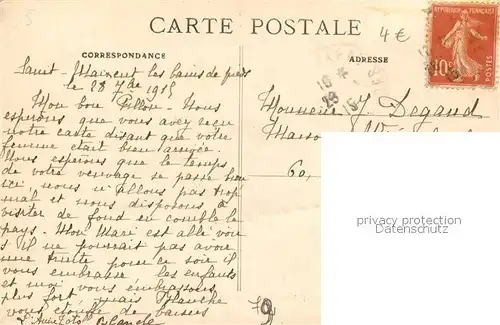 CARTE POSTALE
4 €
CORRESPONDANCE
ADRESSE
RÉPUBLIQUE FRANÇAISE
10c
POSTES
Saint-Maixent les bains de pieds
le 28 7bre 1915
Mon bon Fillon - Nous
espérons que vous avez reçu
notre carte disant que votre
femme était bien arrivée.
Nous espérons que le temps
de votre veuvage se passe bien
ici, nous n'allons pas trop
mal et nous disposons à
visiter de fond en comble le
pays. Mon Mari est allé voir
s'il ne pourrait pas avoir
une truite pour ce soir il
vous embrasse, les enfants
et moi vous embrassons
plus fort, mais Blanche
vous étouffe de baisers
Blanche
Monsieur J. Degand
60,
79
privacy protection
DAREHU